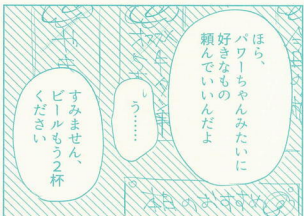 ほら、
パワーちゃんみたいに
好きなもの
頼んでいいんだよ
う……
すみません、
ビールもう2杯
ください
本日のおすすめ